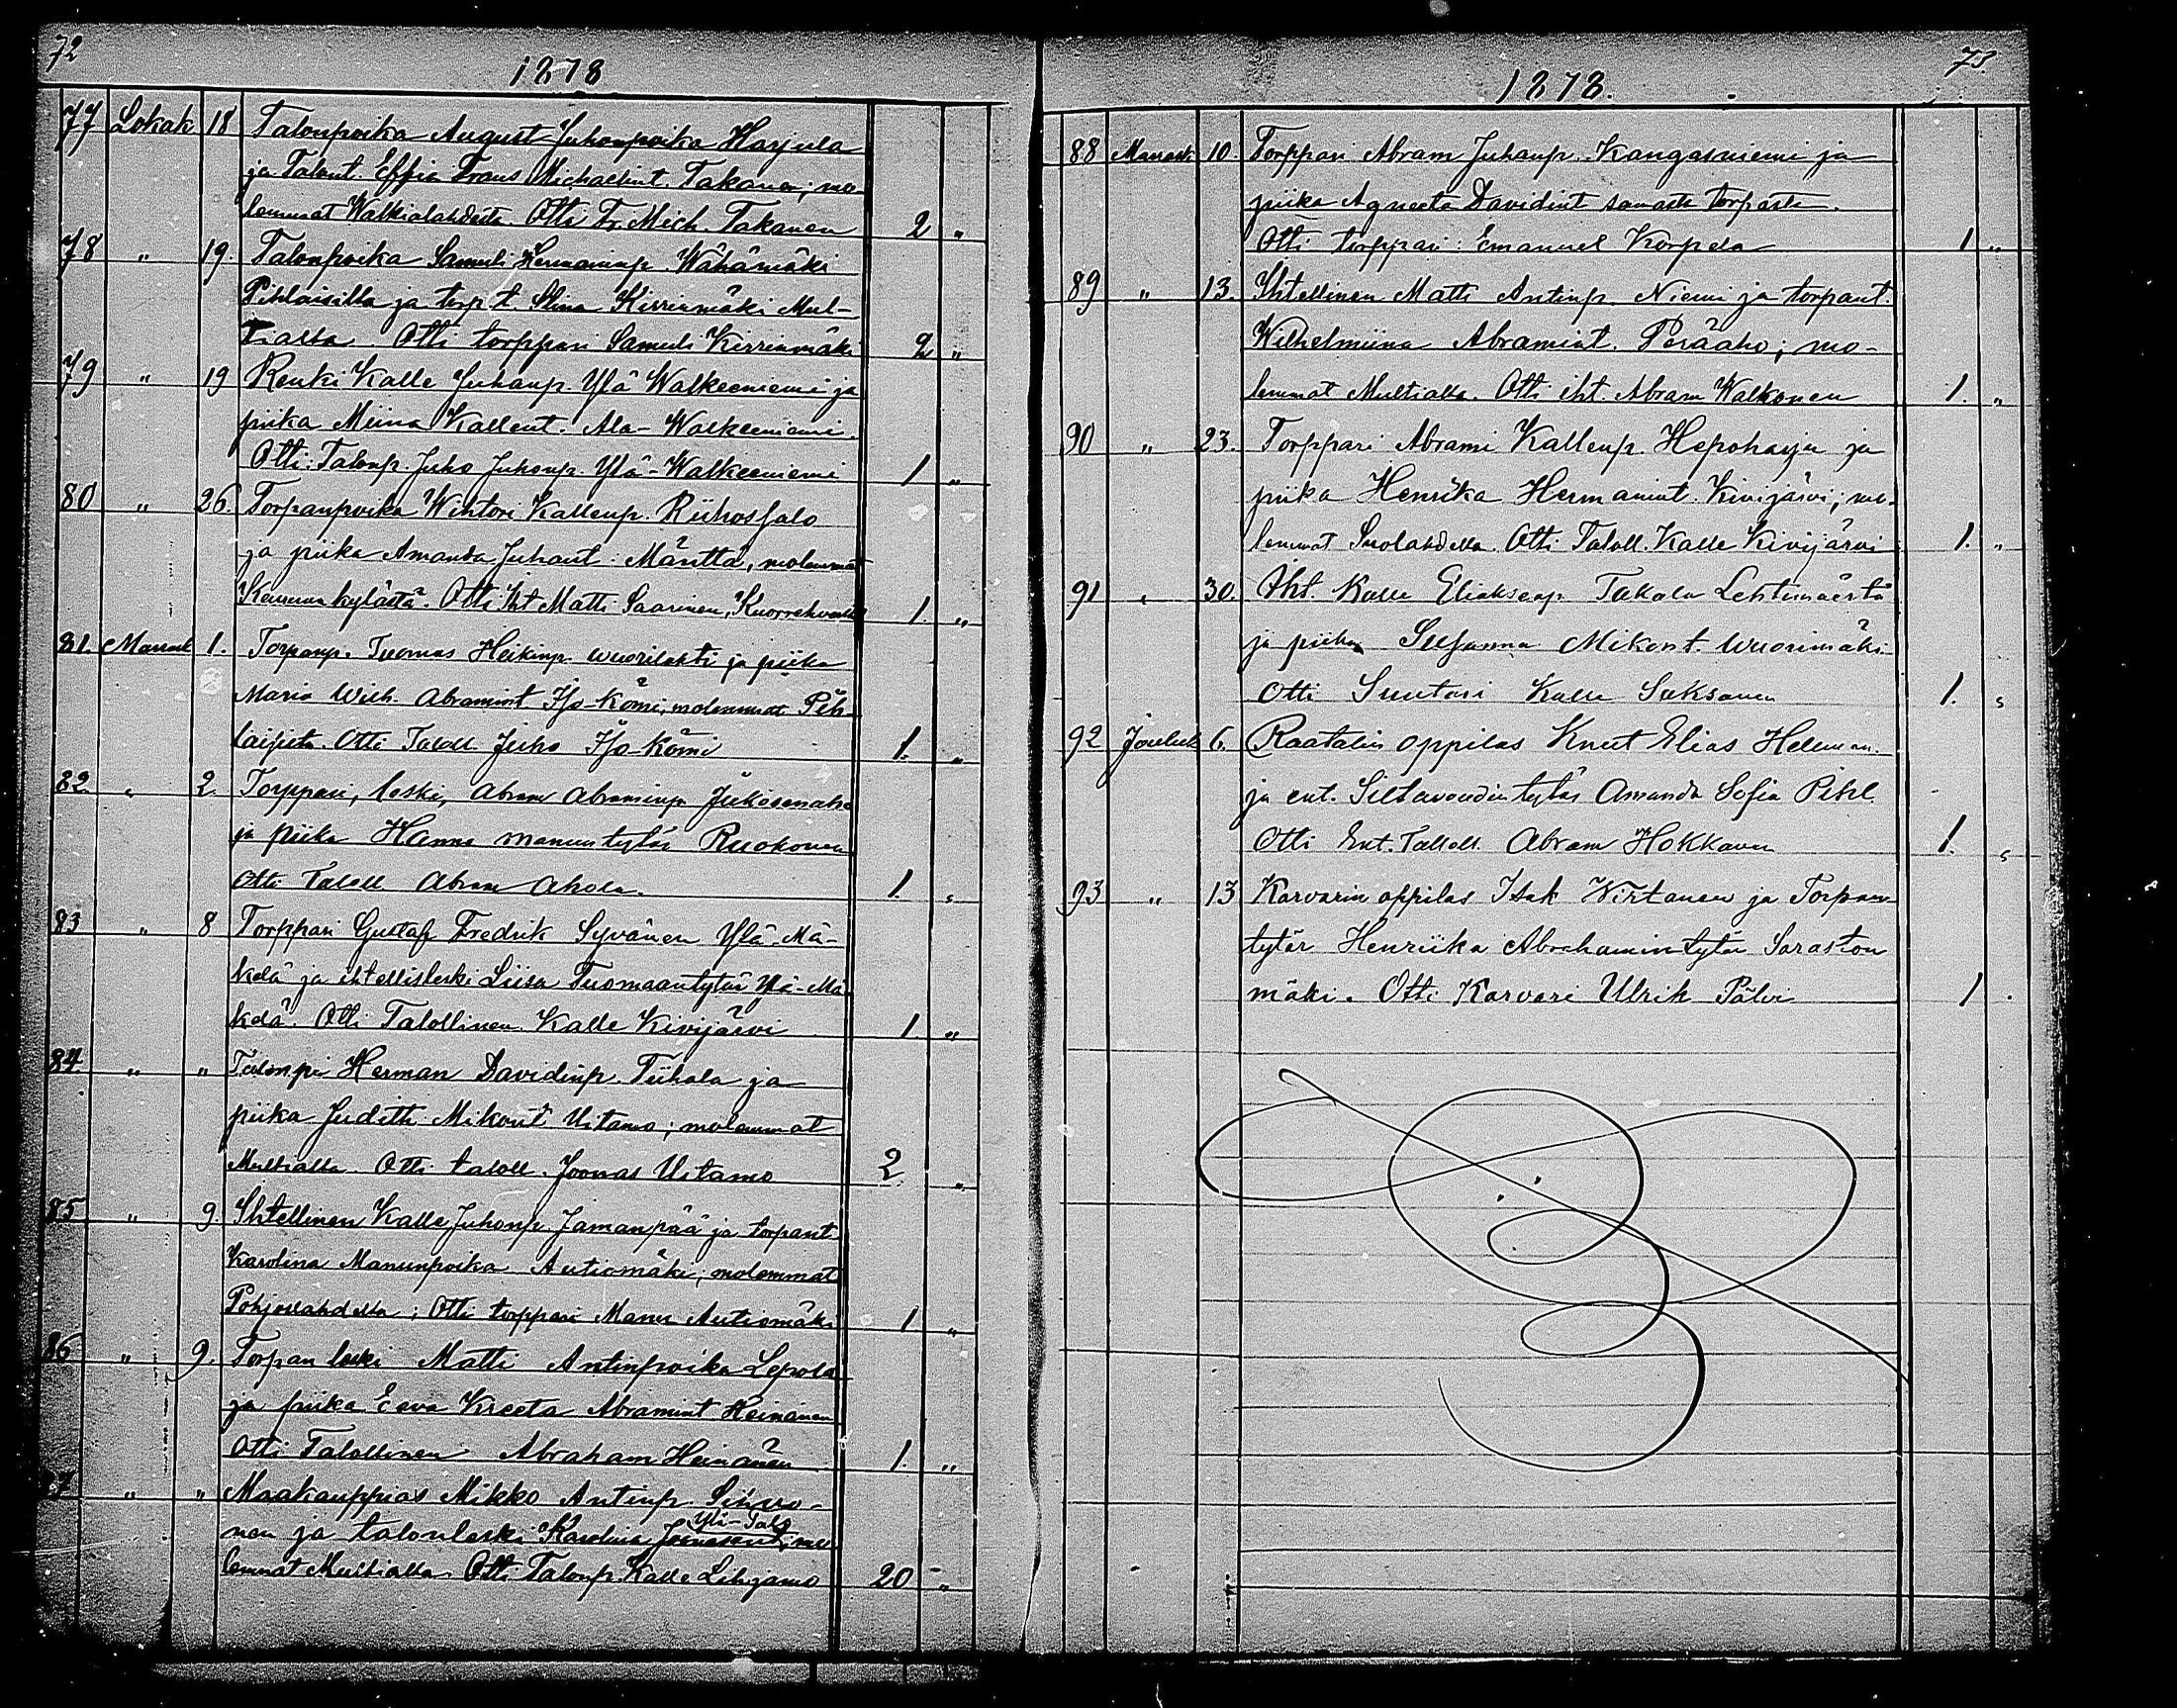 72
1878
77 Lokak 18 Talonpoika August Juhonpoika Harjula
ja Talont. Effia Frans Michaelint. Takanen; mo-
lemmat Walkialahdesta. Otti Fr. Mich. Takanen 2 "
78 " 19. Talonpoika Samuli Hermaninp. Wähämäki
Pihlaisilta ja torp.t. Stina Kirrinmäki Mul-
tialta. Otti torppari Samuli Kirrinmäki 2 "
79 " 19 Renki Kalle Juhanp. Ylä Walkeeniemi ja
piika Miina Kallent. Ala-Walkeeniemi.
Otti: Talonp. Juho Juhonp. Ylä-Walkeeniemi 1 "
80 " 26. Torpanpoika Wihtori Kallenp. Riihosjalo
ja piika Amanda Juhant. Mänttä, molemmat
Keuruun kylästä. Otti Iht Matti Saarinen, 1. "
81. Marrask 1. Torpanp. Tuomas Heikinp. Wuorilahti ja piika
Maria Wilh. Abramint Iso-Kömi, molemmat Pih-
laisista. Otti Taloll. Juho Iso-Kömi 1. "
82. " 2. Torppari, leski, Abram Abraminp
ja piika Hanna Manuntytär Ruokonen
Otti Taloll Abram Ahola. 1. "
83 " 8 Torppari Gustaf Fredrik Syvänen Ylä-Mä-
kelä ja ihtellisleski Liisa Tuomaantytär Ylä-Mä-
kelä. Otti Talollinen Kalle Kivijärvi 1. "
84 " " Talonpi Herman Davidinp. Tiihala ja
piika Judith Mikont Uitamo; molemmat
Multialta. Otti taloll. Joonas Uitamo 2. "
85 " 9. Ihtellinen Kalle Juhonp. Jamanpää ja torpant
Karolina Manunpoika Autiomäki; molemmat
Pohjoslahdelta; Otti torppari Manu Autiomäki 1 "
86 " 9. Torpan leski Matti Antinpoika Lepola
ja piika Eeva Kreeta Abramint Heinänen
Otti Talollinen Abraham Heinänen 1. "
87 " " Maakauppias Mikko Antinp. Sihvo-
nen ja talonleski Karolina Joonaannt Yli-Talo; mo-
lemmat Multialta. Otti Talonp. Kalle Lihjamo 20 "
73.
1878.
88 Marrask 10. Torppari Abram Juhanp. Kangasniemi ja
piika Agneeta Davidint samasta torpasta.
Otti torppari: Emanuel Korpela 1 "
89 " 13. Ihtellinen Matti Antinp. Niemi ja torpant.
Wilhelmiina Abramint. Perääho; mo-
lemmat Multialta. Otti iht. Abram Walkonen 1. "
90 " 23. Torppari Abrami Kallenp. Hepoharju ja
piika Henrika Hermanint. Kivijärvi; mo-
lemmat Suolahdelta. Otti Taloll. Kalle Kivijärvi 1. "
91 " 30. Iht. Kalle Eliaksenp Takala Lehtimäestä
ja piika Susanna Mikont. Wuorimäki
Otti Suutari Kalle Suksanen 1. "
92 Jouluk 6. Raatalin oppilas Knut Elias Hellman
ja ent. Siltavoudin tytär Amanda Sofia Pihl.
Otti Ent. Talloll. Abram Hokkanen 1. "
93 " 13 Karvarin oppilas Isak Wirtanen ja Torpan
tytär Henriika Abrahamintytär Saraston
mäki. Otti Karvari Ulrik Pälvi 1 .